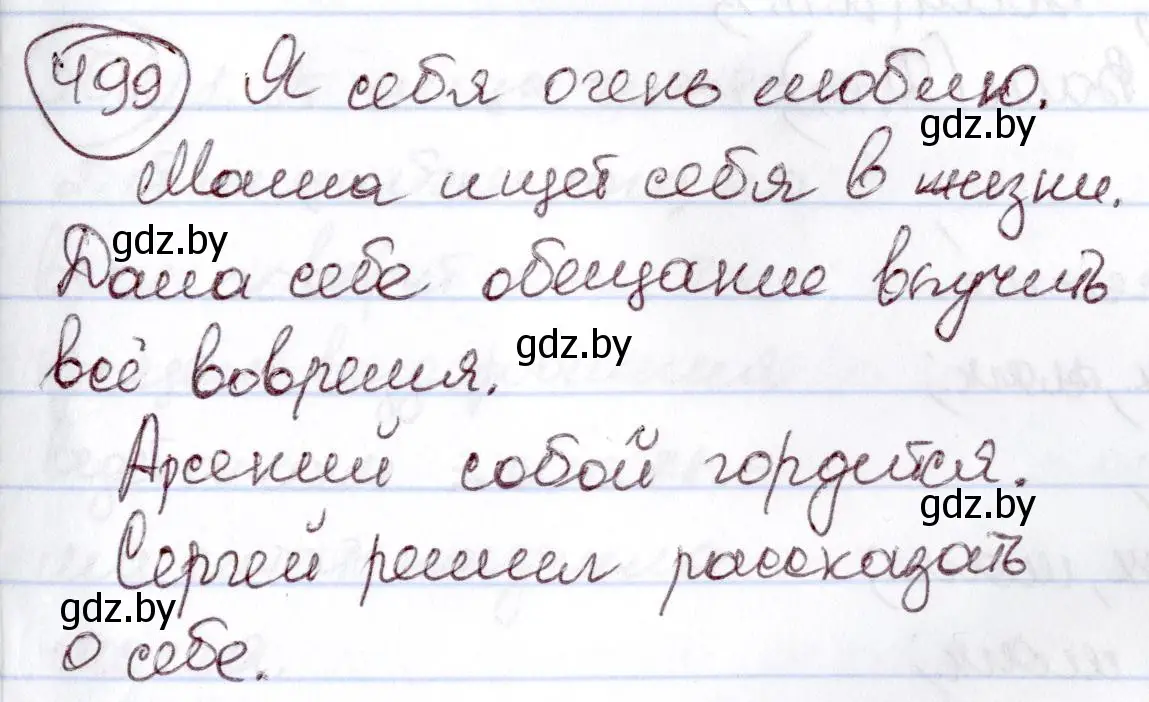 499 Я себя очень люблю.
gdz.by
Маша ищет себя в жизни.
gdz.by
Дала себе обещание выучить
gdz.by
всё вовремя.
Арсений собой гордится.
gdz.by
Сергей решил рассказать
gdz.by
о себе.